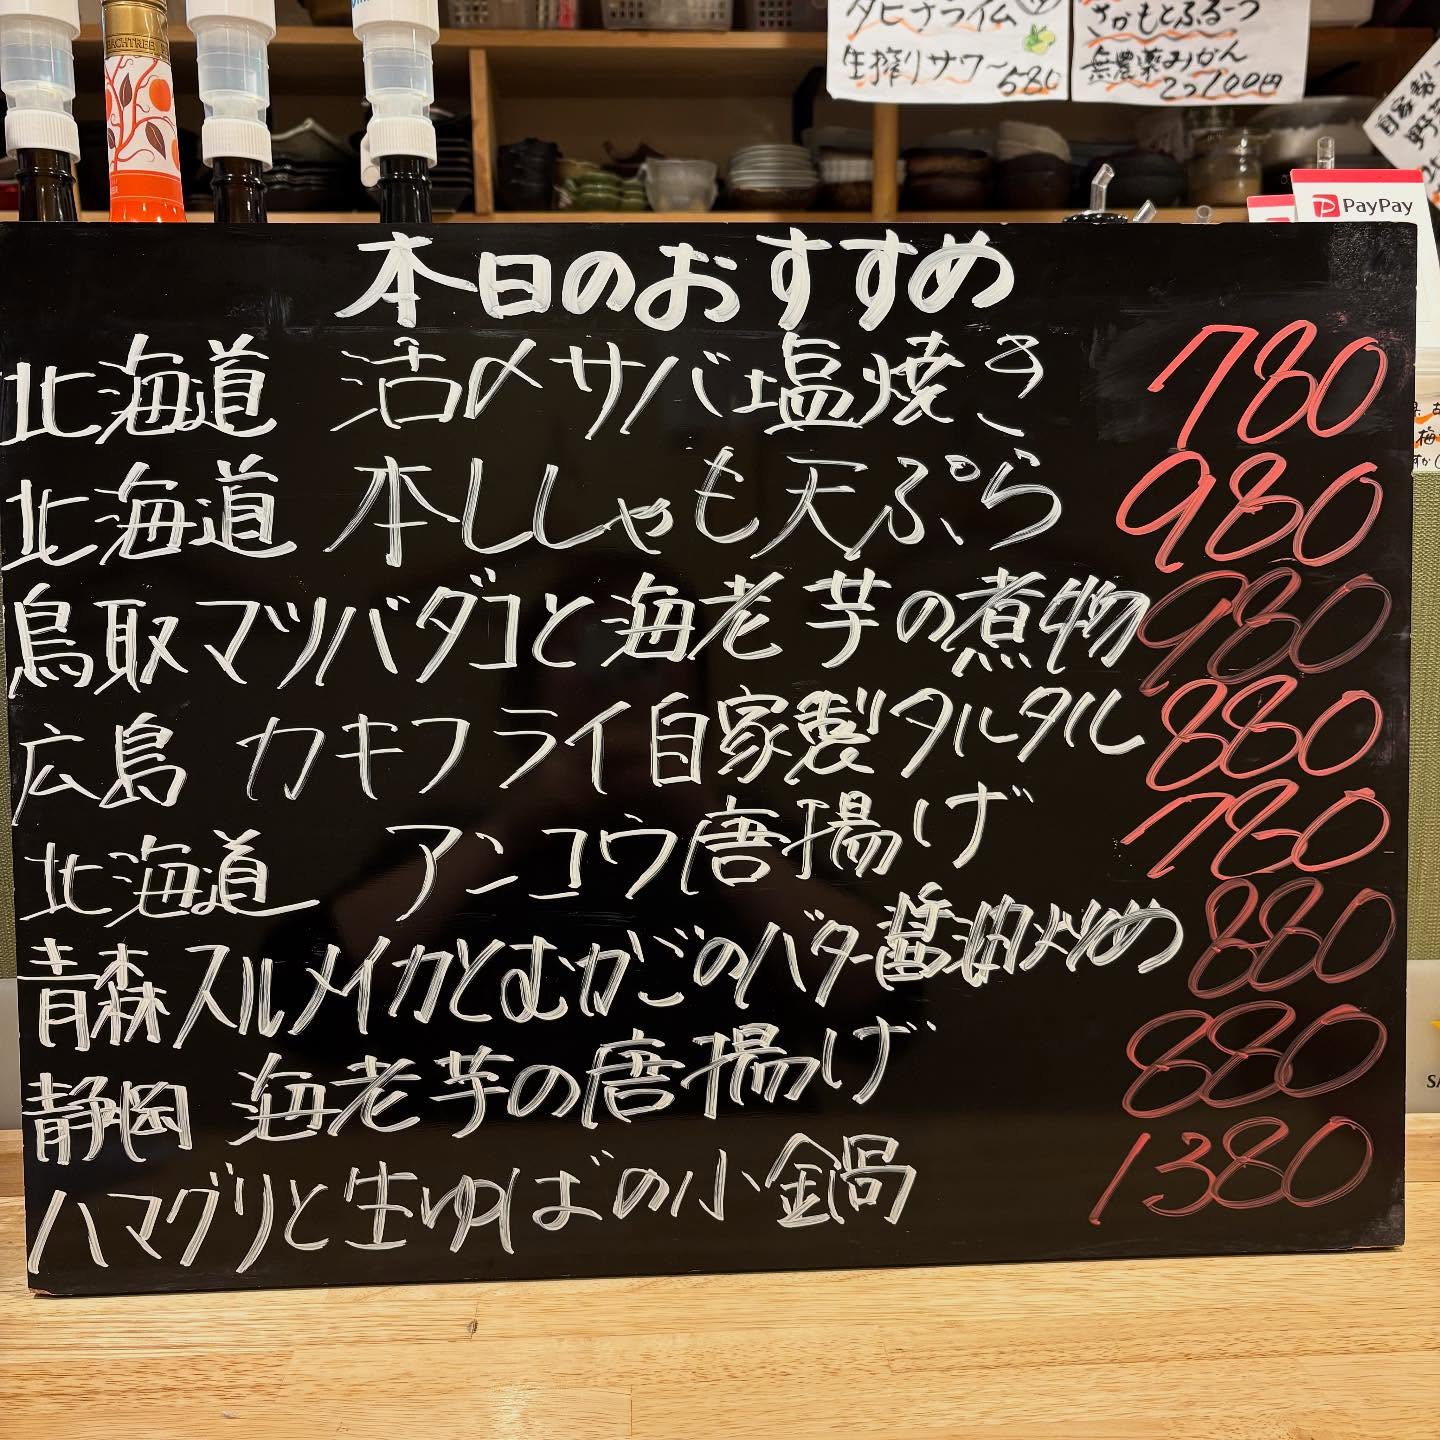 タヒチライム
生搾りサワー580
さかもとふるーつ
無農薬みかん
2コ100円
自家製
PayPay
本日のおすすめ
北海道 活〆サバ塩焼き 780
北海道 本ししゃも天ぷら 980
鳥取マツバダコと海老芋の煮物 980
広島 カキフライ自家製タルタル 880
北海道 アンコウ唐揚げ 780
青森スルメイカとむかごのバター醤油炒め 880
静岡 海老芋の唐揚げ 880
ハマグリと生ゆばの小鍋 1380